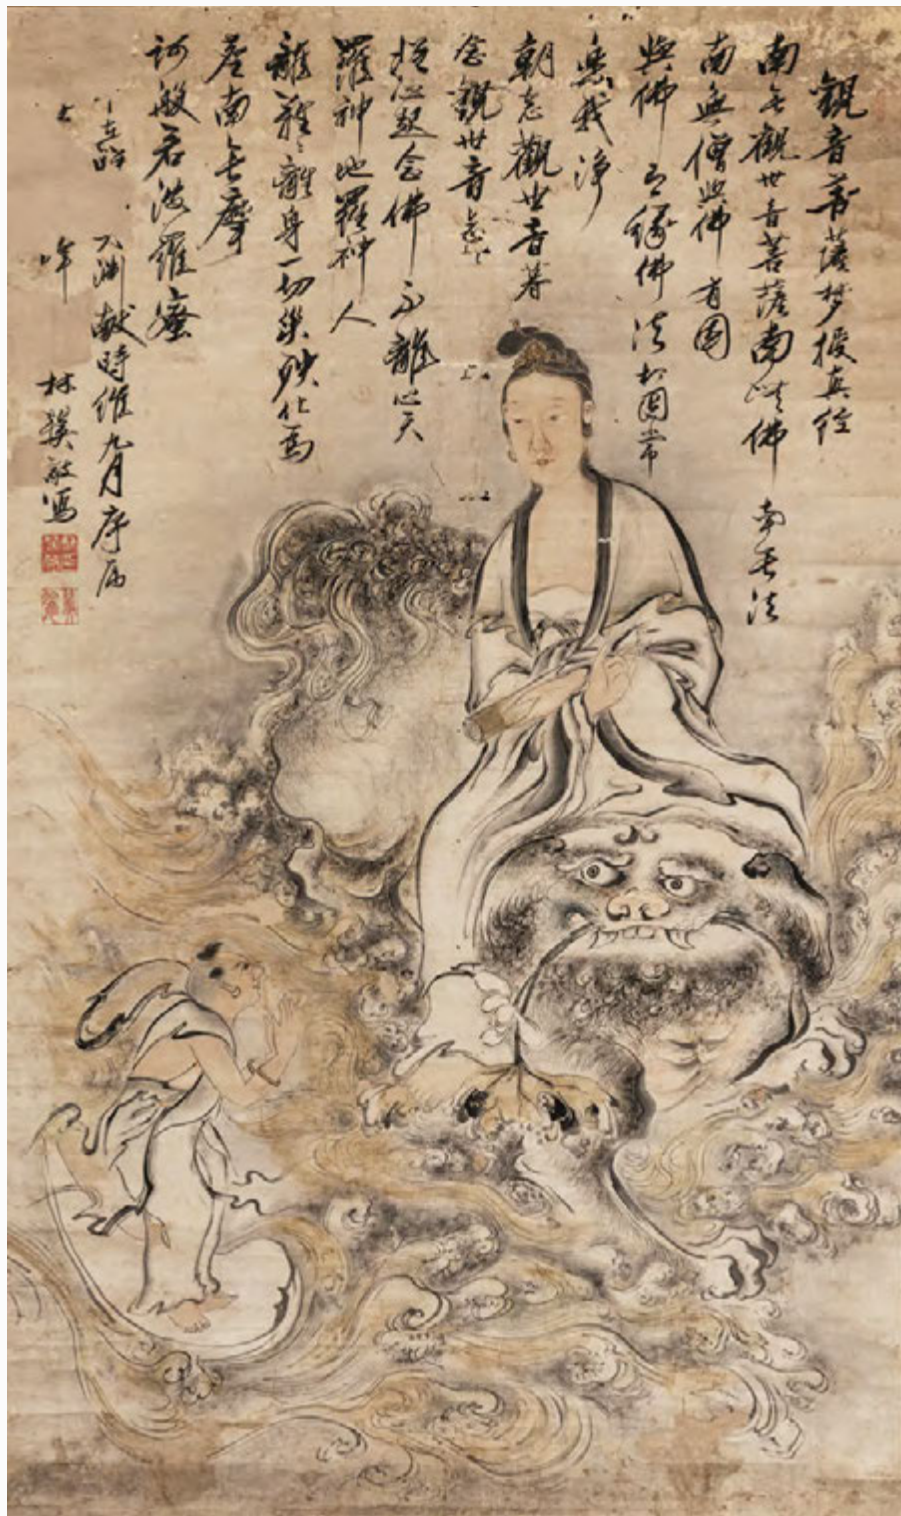 觀音菩薩夢授真經
南無觀世音菩薩南無佛 南無法
南無僧與佛有因
與佛有緣佛法相因常
樂我淨
朝念觀世音暮
念觀世音念
從心起念佛不離心天
羅神地羅神人
離難難離身一切災殃化為
塵南無摩
訶般若波羅蜜
大淵獻時維九月序屬
林 寫